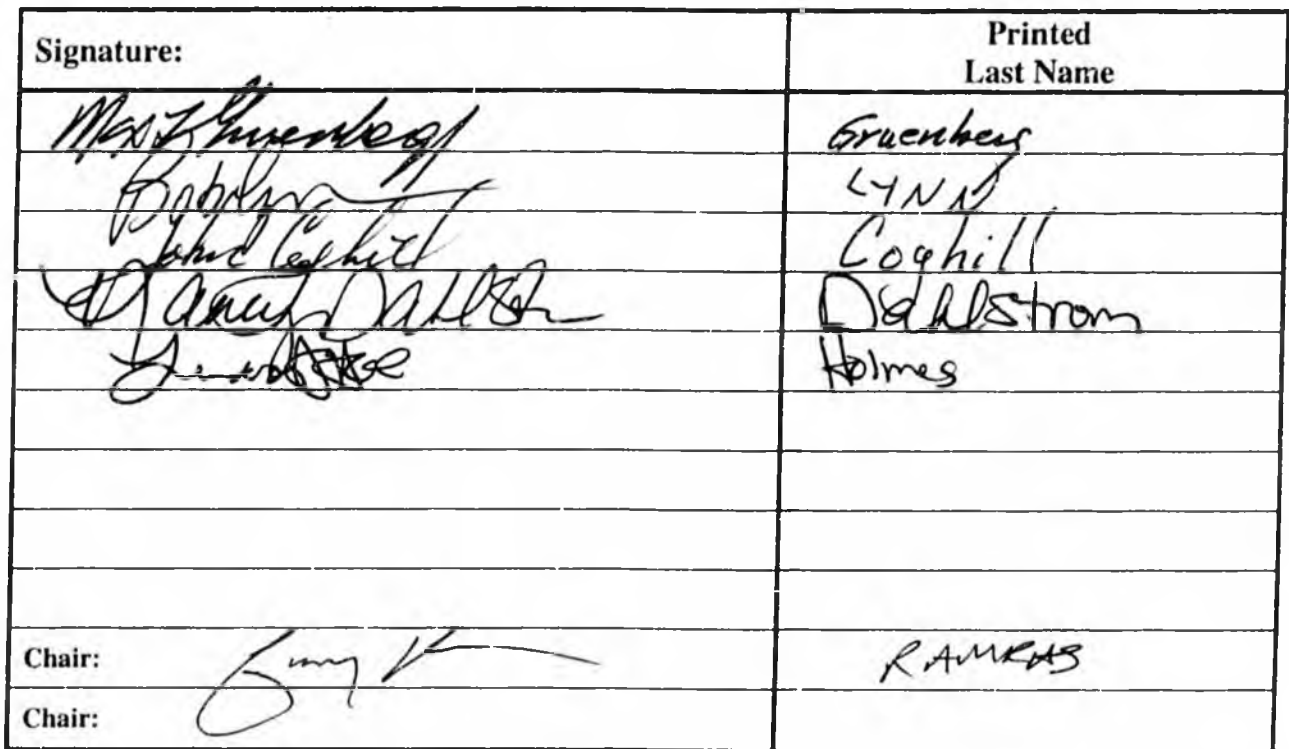 Signature: Printed
Last Name
Max Gruenberg Gruenberg
Bob Lynn LYNN
John Coghill Coghill
Nancy Dahlstrom Dahlstrom
Holmes
Chair: RAMRAS
Chair: